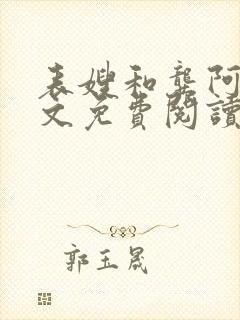 表嫂和龔阿
文免費閱讀
郭玉晟